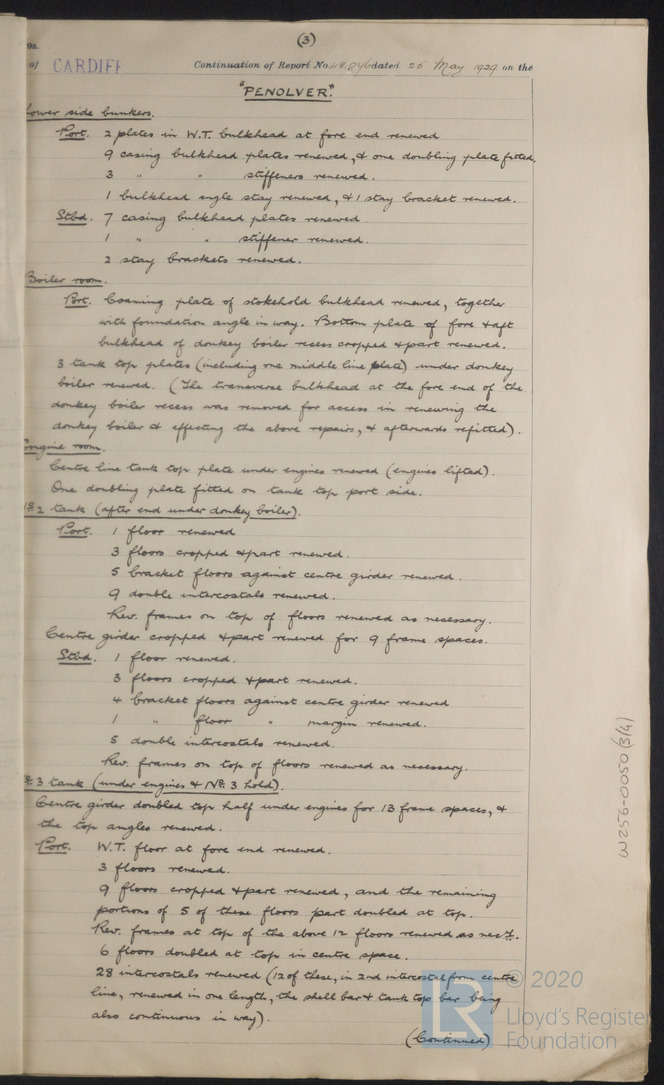 (3)
9a.
of CARDIFF Continuation of Report No. 48,246 dated 25 May 1929 on the
"PENOLVER".
Lower side bunkers.
Port. 2 plates in W.T. bulkhead at fore end renewed
9 casing bulkhead plates renewed, & one doubling plate fitted.
3 " " stiffeners renewed.
1 bulkhead angle stay renewed, & 1 stay bracket renewed.
Stbd. 7 casing bulkhead plates renewed
1 " " stiffener renewed.
2 stay brackets renewed.
Boiler room.
Port. Coaming plate of stokehold bulkhead renewed, together
with foundation angle in way. Bottom plate of fore & aft
bulkhead of donkey boiler recess cropped & part renewed.
3 tank top plates (including one middle line plate) under donkey
boiler renewed. (The transverse bulkhead at the fore end of the
donkey boiler recess was removed for access in renewing the
donkey boiler & effecting the above repairs, & afterwards refitted).
Engine room.
Centre line tank top plate under engines renewed (engines lifted).
One doubling plate fitted on tank top port side.
Nº 2 tank (after end under donkey boiler).
Port. 1 floor renewed
3 floors cropped & part renewed.
5 bracket floors against centre girder renewed.
9 double intercostals renewed.
Rev. frames on top of floors renewed as necessary.
Centre girder cropped & part renewed for 9 frame spaces.
Stbd. 1 floor renewed.
3 floors cropped & part renewed.
4 bracket floors against centre girder renewed
1 " floor " margin renewed.
5 double intercostals renewed.
Rev. frames on top of floors renewed as necessary.
Nº 3 tank (under engines & Nº 3 hold).
Centre girder doubled top half under engines for 13 frame spaces, &
the top angles renewed.
Port. W.T. floor at fore end renewed.
3 floors renewed.
9 floors cropped & part renewed, and the remaining
portions of 5 of these floors part doubled at top.
Rev. frames at top of the above 12 floors renewed as necy.
6 floors doubled at top in centre space.
28 intercostals renewed (12 of these, in 2nd intercostal from centre
line, renewed in one length, the shell bar & tank top bar being
also continuous in way).
(Continued)
W256-0050 (3/4)
LR
© 2020
Lloyd's Register
Foundation